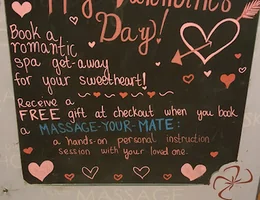 Valentine's
Day!
Book a
romantic
spa get-away
for your sweetheart!
Receive a
FREE gift at checkout when you book
a MASSAGE-YOUR-MATE:
a hands-on personal instruction
session with your loved one.
MASSAGE